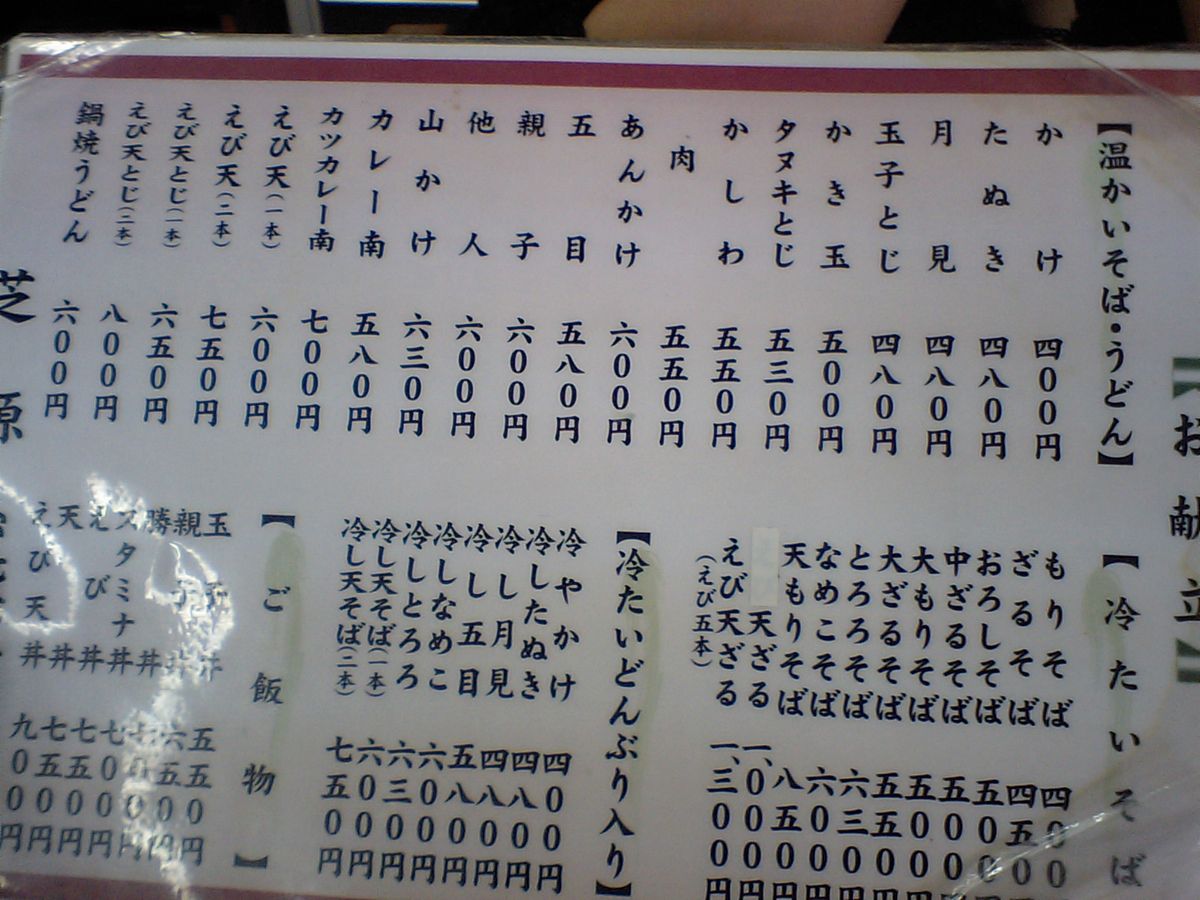 お献立
【温かいそば・うどん】
かけ 四〇〇円
たぬき 四八〇円
月見 四八〇円
玉子とじ 四八〇円
かき玉 五〇〇円
タヌキとじ 五三〇円
かしわ 五五〇円
肉 五五〇円
あんかけ 六〇〇円
五目 五八〇円
親子 六〇〇円
他人 六〇〇円
山かけ 六三〇円
カレー南 五八〇円
カツカレー南 七〇〇円
えび天(一本) 六〇〇円
えび天(二本) 七五〇円
えび天とじ(一本) 六五〇円
えび天とじ(二本) 八〇〇円
鍋焼うどん 六〇〇円
【冷たいそば
もりそば 四〇〇
ざるそば 四五〇
おろしそば 五〇〇
中ざるそば 五〇〇
大もりそば 五〇〇円
大ざるそば 五五〇円
とろろそば 六三〇円
なめこそば 六〇〇円
天もりそば 八五〇円
天ざる 一、〇〇〇円
えび天ざる(えび五本) 一、三〇〇円
【冷たいどんぶり入り】
冷やかけ 四〇〇円
冷したぬき 四八〇円
冷し月見 四八〇円
冷し五目 五八〇円
冷しなめこ 六〇〇円
冷しとろろ 六三〇円
冷し天そば(一本) 六〇〇円
冷し天そば(二本) 七五〇円
【ご飯物】
玉子丼 五五〇円
親子丼 六五〇円
勝丼
スタミナ丼 七〇〇円
えび丼 七五〇円
天丼 七五〇円
えび天丼 九〇〇円
芝原